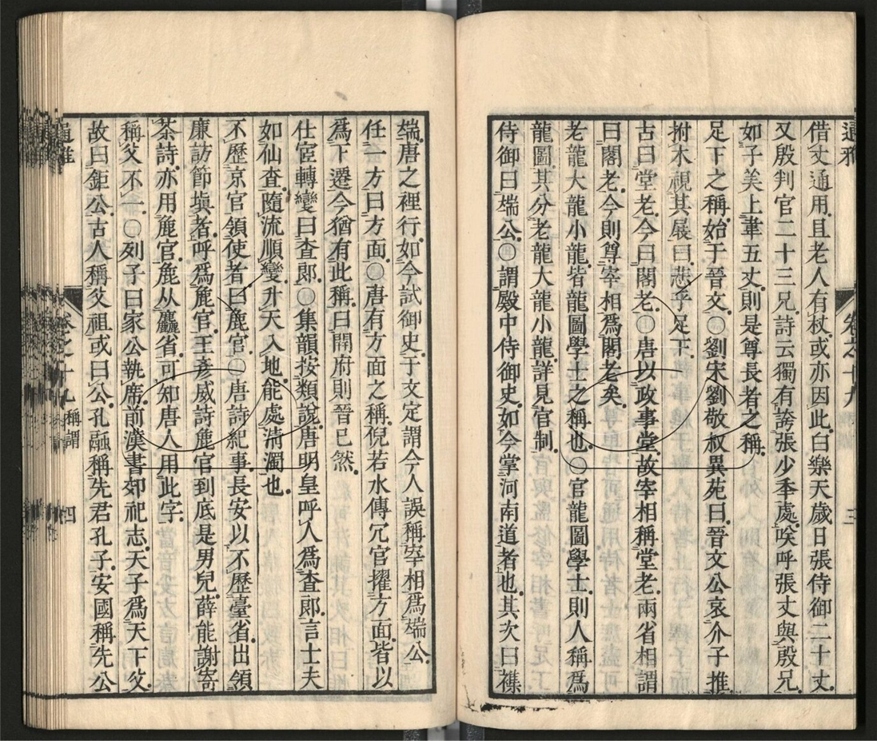 借丈通用且老人有杖或亦因此白樂天歲日張侍御二十丈
又殷判官二十三兄詩云獨有誇張少年處笑呼張丈與殷兄
如子美上韋五丈則是尊長者之稱
足下之稱始于晉文〇劉宋劉敬叔異苑曰晉文公哀介子推
拊木視其屐曰悲乎足下
古曰堂老今曰閣老〇唐以政事堂故宰相稱堂老兩省相謂
曰閣老今則尊宰相為閣老矣
老龍大龍小龍皆龍圖學士之稱也〇官龍圖學士則人稱為
龍圖其分老龍大龍小龍詳見官制
侍御曰端公〇謂殿中侍御史如今掌河南道者也其次曰襍
通雅 卷之十九 三
端唐之裡行如今試御史于文定謂今人誤稱宰相為端公
任一方曰方面〇唐有方面之稱倪若水傳冗官擢方面皆以
為下遷今猶有此稱曰開府則晉已然
仕宦轉變曰査郎〇集韻按類說唐明皇呼人為査郎言士夫
如仙査隨流順變升天入地能處淸濁也
不歷京官領使者曰麄官〇唐詩紀事長安以不歷臺省出領
廉訪節塡者呼為麄官王彥威詩麄官到底是男兒薛能謝寄
茶詩亦用麄官麄从麤省可知唐人用此字
稱父不一〇列子曰家公執席前漢書郊祀志天子為天下父
故曰鉅公古人稱父祖或曰公孔融稱先君孔子安國稱先公
通雅 卷之十九 稱謂 四